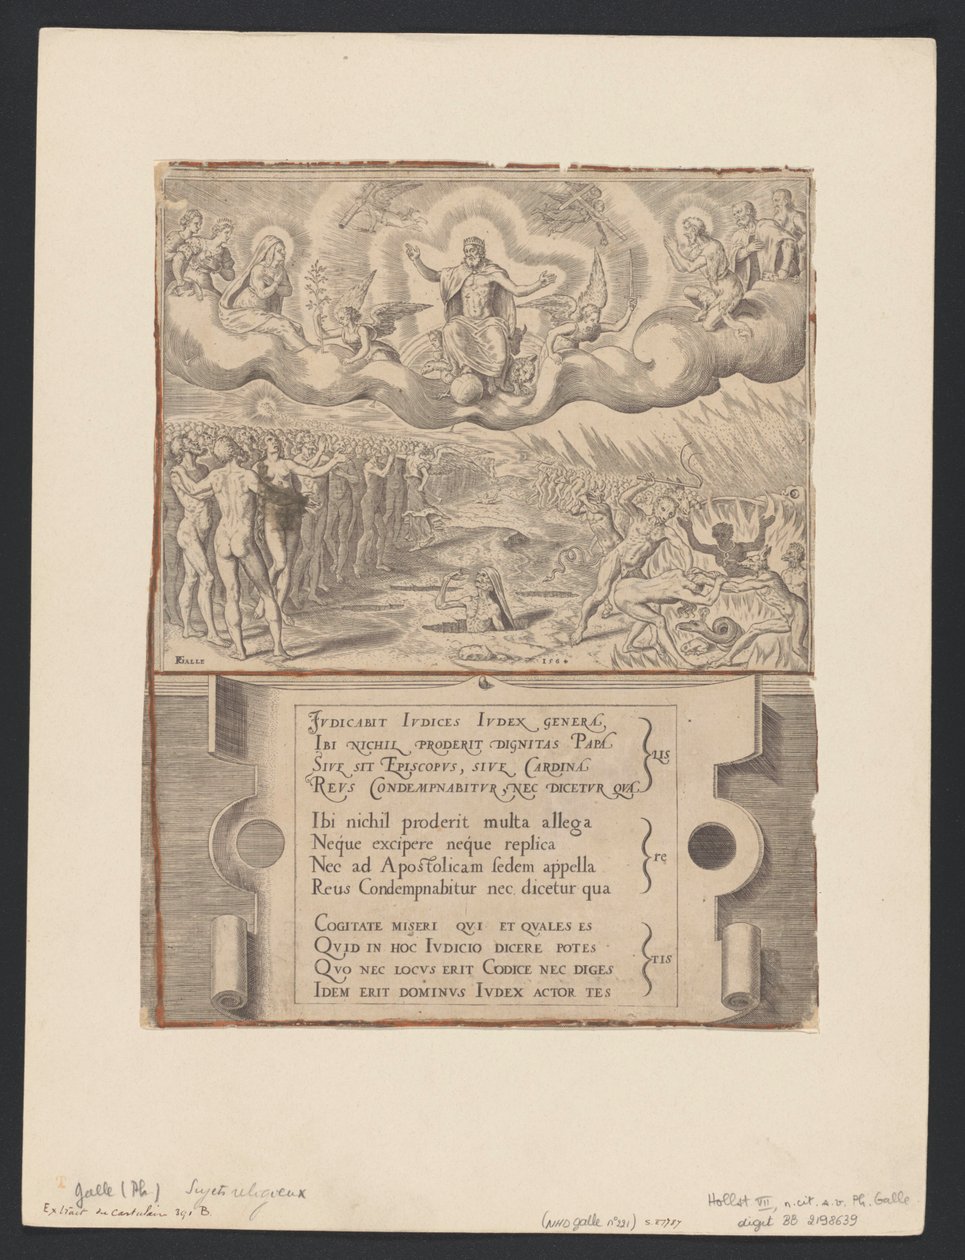 PGALLE
1564
IVDICABIT IVDICES IVDEX GENERA
IBI NICHIL PRODERIT DIGNITAS PAPA
SIVE SIT EPISCOPVS, SIVE CARDINA
REVS CONDEMPNABITVR, NEC DICETVR QVA
LIS
Ibi nichil proderit multa allega
Neque excipere neque replica
Nec ad Apostolicam sedem appella
Reus Condempnabitur nec dicetur qua
rę
COGITATE MISERI QVI ET QVALES ES
QVID IN HOC IVDICIO DICERE POTES
QVO NEC LOCVS ERIT CODICE NEC DIGES
IDEM ERIT DOMINVS IVDEX ACTOR TES
TIS
Galle (Ph) Sujets religieux
Extrait du cartulaire 391 B.
(NHD Galle n°221) S.II 787
Hollst VII, n. cit. s.v. Ph. Galle
digit BB 2198639